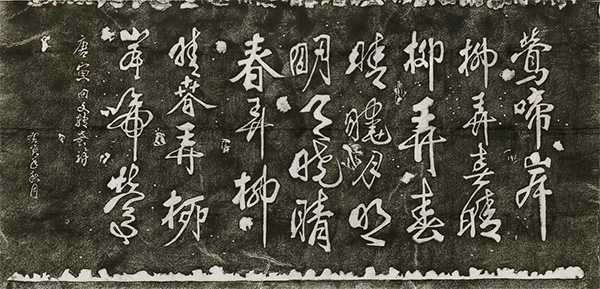 鶯啼岸
柳弄春晴
柳弄春
晴曉月明
明月曉晴
春弄柳
晴春弄柳
岸啼鶯
唐寅回文詩